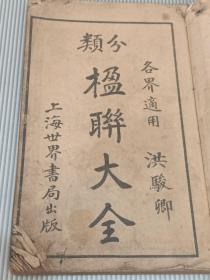 分類
各界適用
洪駿卿
楹聯大全
上海世界書局出版